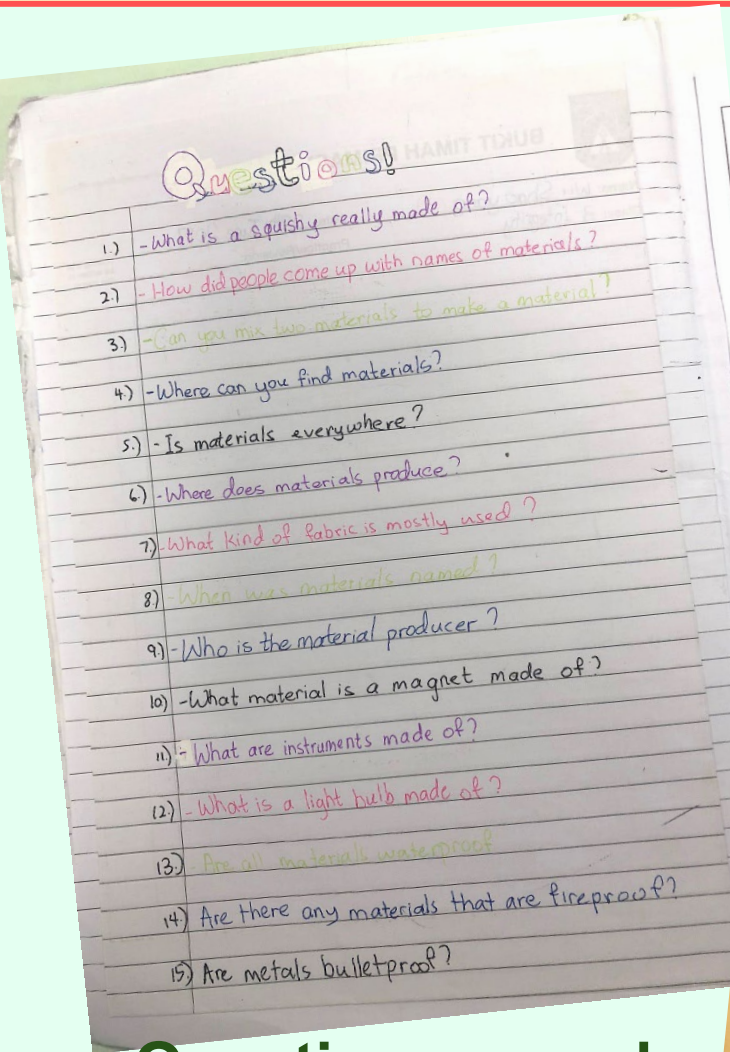 Questions!
1.) -What is a squishy really made of?
2.) - How did people come up with names of materials?
3.) -Can you mix two materials to make a material?
4.) -Where can you find materials?
5.) - Is materials everywhere?
6.) -Where does materials produce?
7.) -What kind of fabric is mostly used?
8.) -When was materials named?
9.) -Who is the material producer?
10) -What material is a magnet made of?
11.) - What are instruments made of?
12.) - What is a light bulb made of?
13.) - Are all materials waterproof
14.) Are there any materials that are fireproof?
15.) Are metals bulletproof?